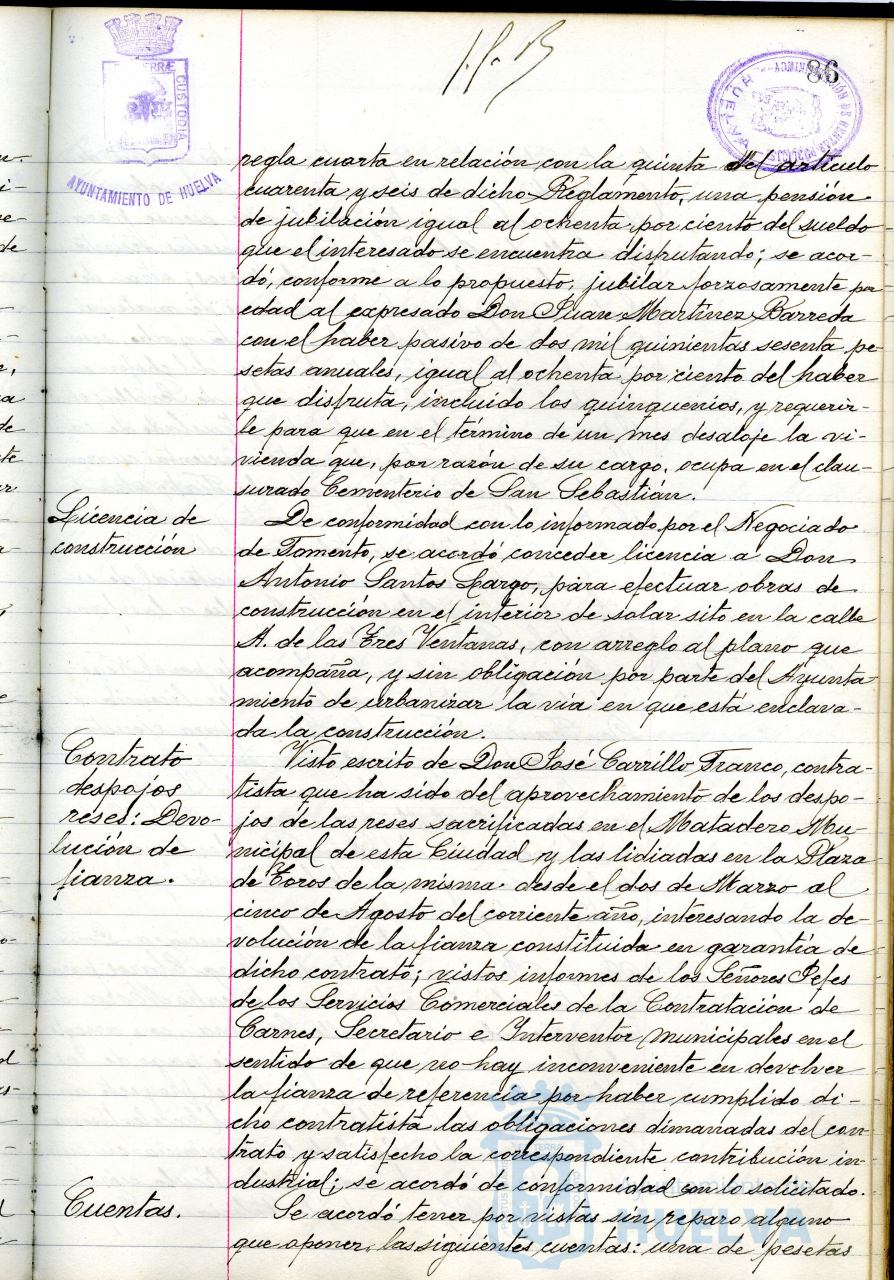 86
PORTUS MARIS ET TERRÆ CUSTODIA
AYUNTAMIENTO DE HUELVA
HUELVA
regla cuarta en relación con la quinta del artículo
cuarenta y seis de dicho Reglamento, una pensión
de jubilación igual al ochenta por ciento del sueldo
que el interesado se encuentra disfrutando; se acor-
dó, conforme a lo propuesto, jubilar forzosamente por
edad al expresado Don Juan Martínez Barreda
con el haber pasivo de dos mil quinientas sesenta pe-
setas anuales, igual al ochenta por ciento del haber
que disfruta, incluido los quinquenios, y requerir-
le para que en el término de un mes desaloje la vi-
vienda que, por razón de su cargo, ocupa en el clau-
surado Cementerio de San Sebastián.
Licencia de
construcción
De conformidad con lo informado por el Negociado
de Fomento, se acordó conceder licencia a Don
Antonio Santos Largo, para efectuar obras de
construcción en el interior de solar sito en la calle
A. de las Tres Ventanas, con arreglo al plano que
acompaña, y sin obligación por parte del Ayunta-
miento de urbanizar la vía en que está enclava-
da la construcción.
Contrato
despojos
reses: Devo-
lución de
fianza.
Visto escrito de Don José Carrillo Franco, contra-
tista que ha sido del aprovechamiento de los despo-
jos de las reses sacrificadas en el Matadero Mu-
nicipal de esta Ciudad y las lidiadas en la Plaza
de Toros de la misma desde el dos de Marzo al
cinco de Agosto del corriente año, interesando la de-
volución de la fianza constituida en garantía de
dicho contrato; vistos informes de los Señores Jefes
de los Servicios Comerciales de la Contratación de
Carnes, Secretario e Interventor municipales en el
sentido de que no hay inconveniente en devolver
la fianza de referencia por haber cumplido di-
cho contratista las obligaciones dimanadas del con-
trato y satisfecho la correspondiente contribución in-
dustrial; se acordó de conformidad con lo solicitado.
Cuentas.
Se acordó tener por vistas sin reparo alguno
que oponer, las siguientes cuentas: una de pesetas
Ayuntamiento de
HUELVA